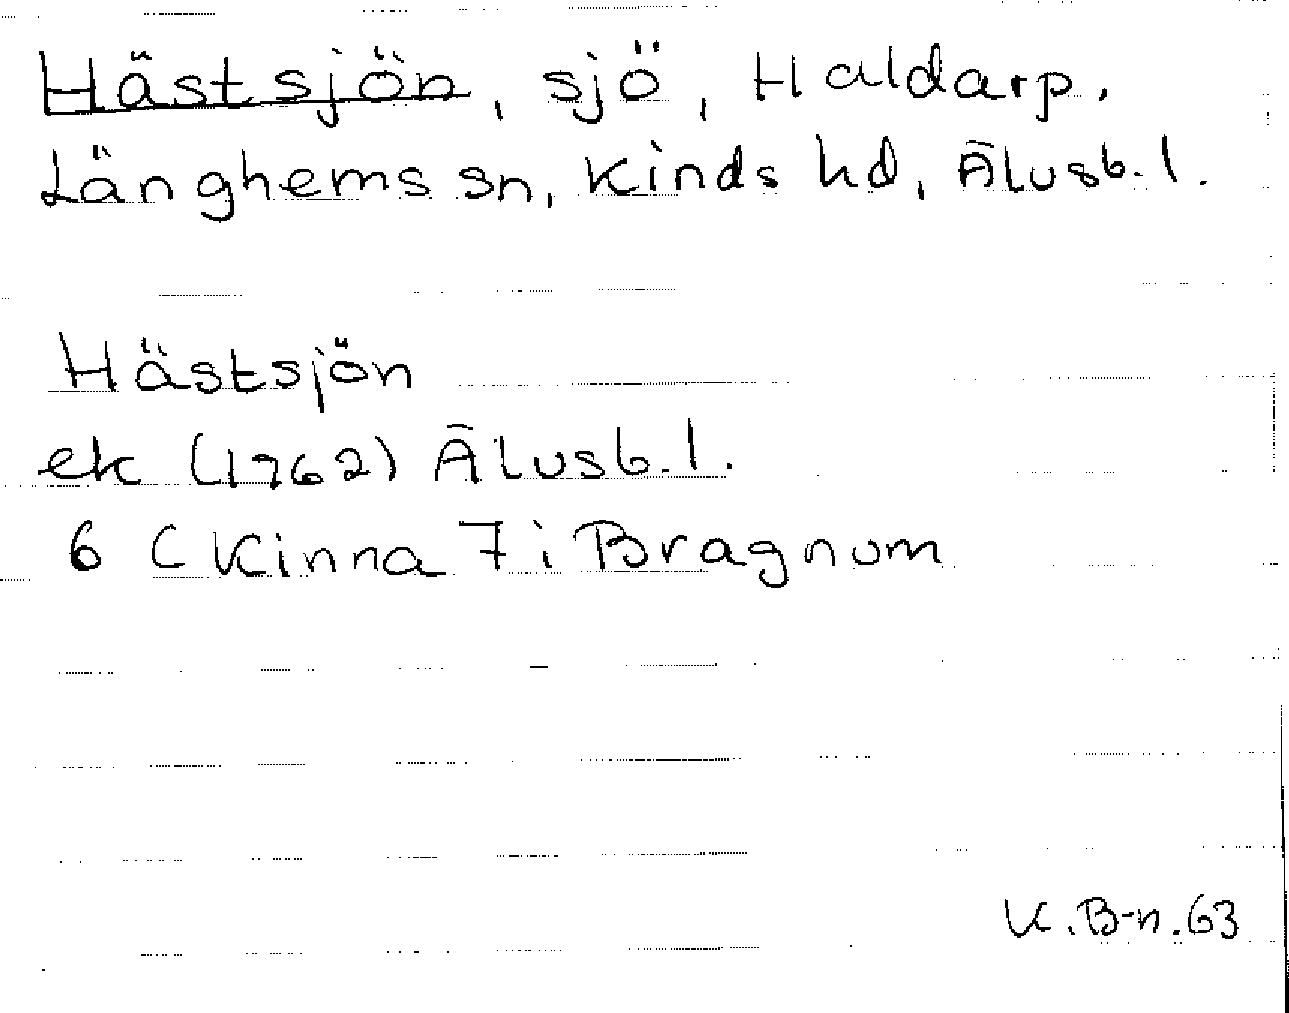 Hästsjön, sjö, Haldarp.
Länghems sn, Kinds hd, Älvsb. l.
Hästsjön
ek (1762) Älvsb. l.
6 C Kinna 7 i Bragnum
K. B-n. 63